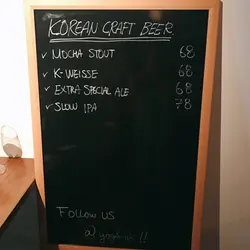 KOREAN CRAFT BEER
✓ MOCHA STOUT 68
✓ K-WEISSE 68
✓ EXTRA SPECIAL ALE 68
✓ SLOW IPA 78
FOLLOW US
@